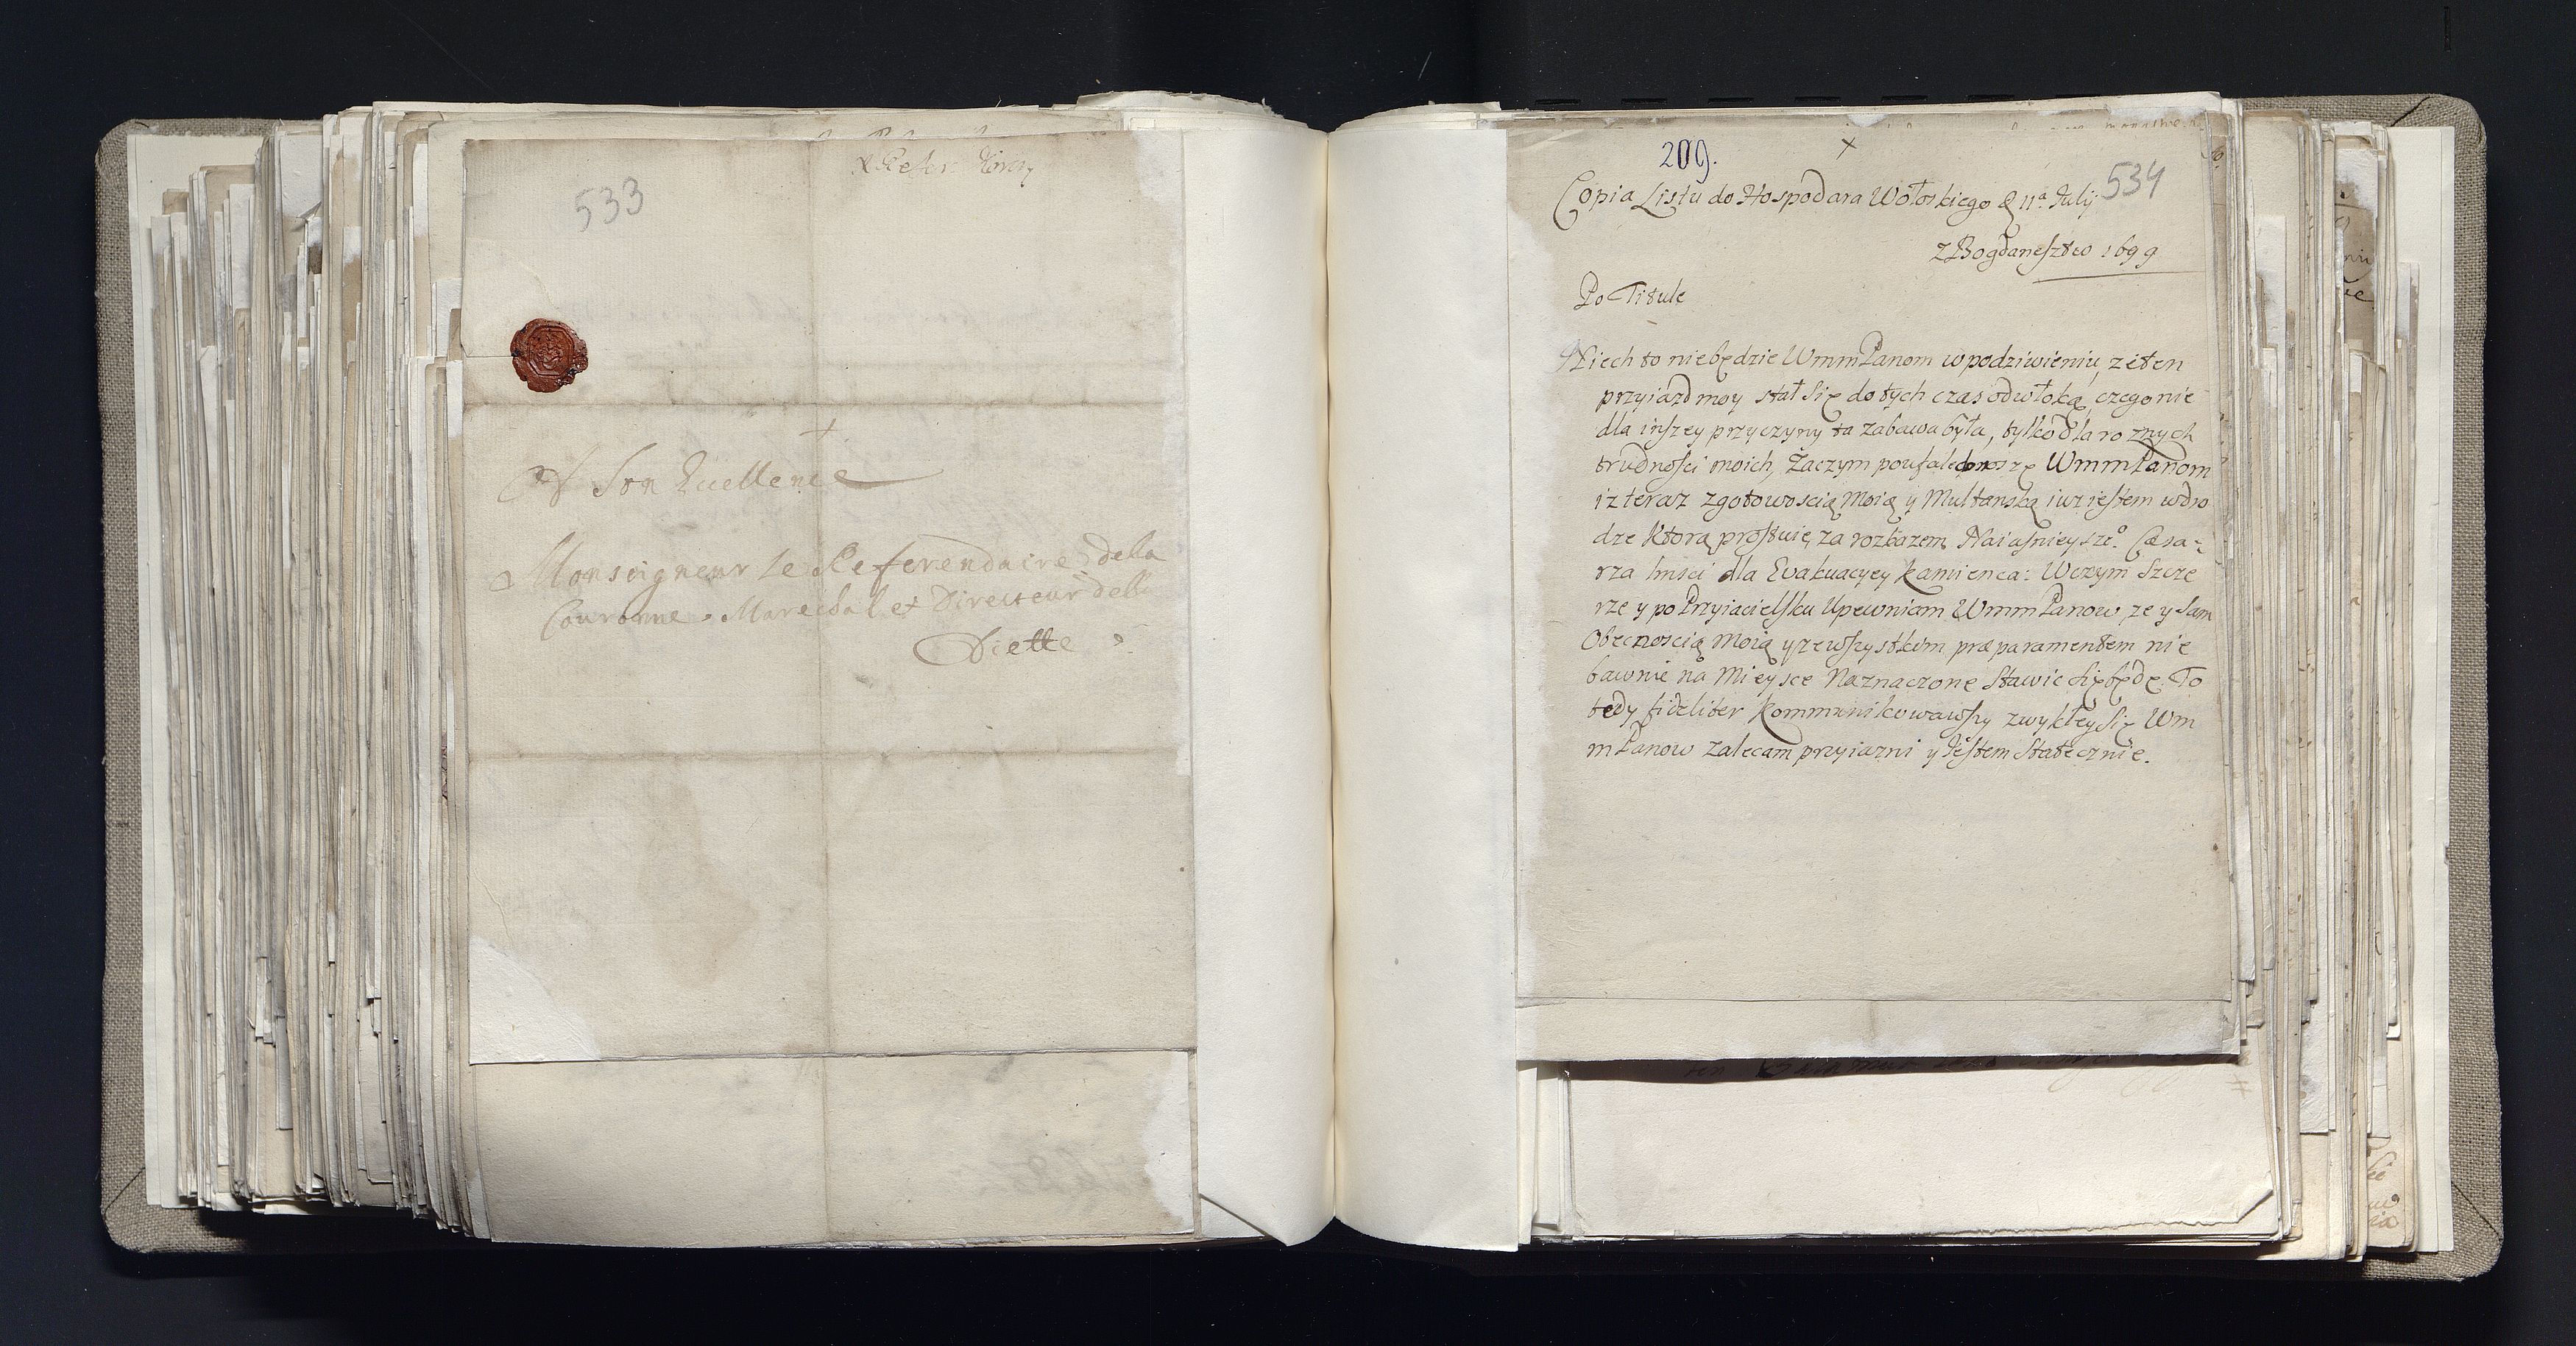 533
A Son Excellence
Monseigneur le Referendaire dela
Couronne Marechal et Directeur dela
Diette
209.
534
Copia Listu do Hospodara Wołoskiego d 11a July
z Bogdanesztω 1699
Po Titule
Niech to niebędzie WmmPanom wpodziwieniu, zeten
przyiazd moy stał się dotych czas odwłoką, czego nie
dla inszey przyczyny ta zabawa była, tylko dla roznych
trudnosci moich, Zaczym poufale donoszę WmmPanom
iz teraz zgotowoscią moią y Multanską iuz iestem wdro
dze ktorą prostuię, za rozkazem Naiasnieyszeo. Cæsa=
rza Imsci dla Evakuacyey Kamienca: Wczym Szcze
rze y po Przyiacielsku Upewniam WmmPanow, ze y Sam
Obecnoscią Moią y zewszystkim præparamentem nie
bawnie na Mieysce Naznaczone Stawic się będę. To
tedy fideliter kommunikowawszy zwykłey się Wm
mPanow zalecam przyiazni y Jestem Statecznie.